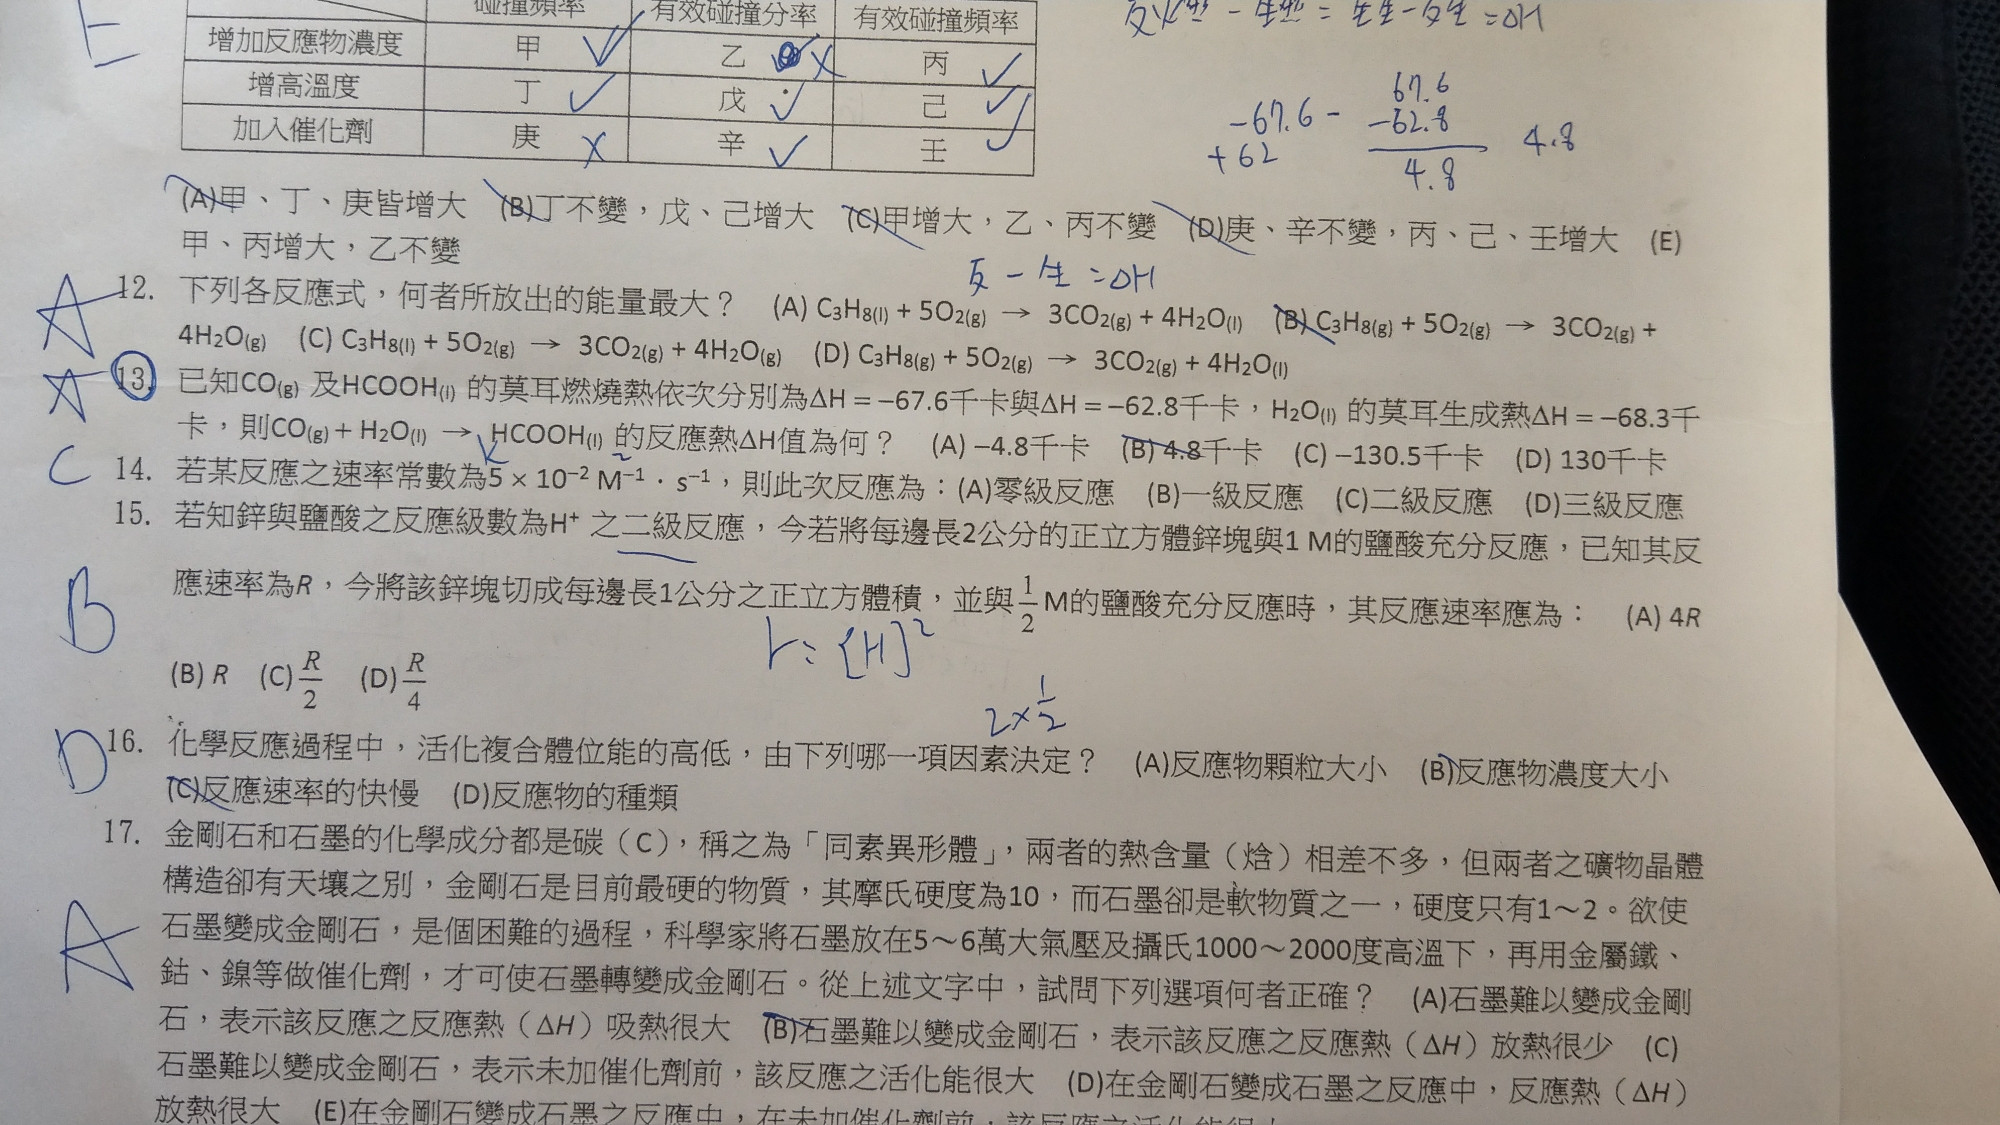 碰撞頻率 有效碰撞分率 有效碰撞頻率 反火熱 - 生熱 = 生生 - 反生 = ΔH
E
增加反應物濃度 甲 ✓ 乙 X 丙 ✓
增高溫度 丁 ✓ 戊 ✓ 己 ✓
加入催化劑 庚 X 辛 ✓ 壬 ✓
67.6
-67.6 - -62.8 4.8
+62 4.8
(A)甲、丁、庚皆增大 (B)丁不變，戊、己增大 (C)甲增大，乙、丙不變 (D)庚、辛不變，丙、己、壬增大 (E)
甲、丙增大，乙不變
反 - 生 = ΔH
A 12. 下列各反應式，何者所放出的能量最大？ (A) C3H8(l) + 5O2(g) → 3CO2(g) + 4H2O(l) (B) C3H8(g) + 5O2(g) → 3CO2(g) +
4H2O(g) (C) C3H8(l) + 5O2(g) → 3CO2(g) + 4H2O(g) (D) C3H8(g) + 5O2(g) → 3CO2(g) + 4H2O(l)
13. 已知CO(g) 及HCOOH(l) 的莫耳燃燒熱依次分別為ΔH = −67.6千卡與ΔH = −62.8千卡，H2O(l) 的莫耳生成熱ΔH = −68.3千
卡，則CO(g) + H2O(l) → HCOOH(l) 的反應熱ΔH值為何？ (A) −4.8千卡 (B) 4.8千卡 (C) −130.5千卡 (D) 130千卡
K
C 14. 若某反應之速率常數為5 × 10−2 M−1 · s−1，則此次反應為：(A)零級反應 (B)一級反應 (C)二級反應 (D)三級反應
15. 若知鋅與鹽酸之反應級數為H+ 之二級反應，今若將每邊長2公分的正立方體鋅塊與1 M的鹽酸充分反應，已知其反
B 應速率為R，今將該鋅塊切成每邊長1公分之正立方體積，並與1/2 M的鹽酸充分反應時，其反應速率應為： (A) 4R
r = [H]2
(B) R (C) R/2 (D) R/4
2×1/2
D 16. 化學反應過程中，活化複合體位能的高低，由下列哪一項因素決定？ (A)反應物顆粒大小 (B)反應物濃度大小
(C)反應速率的快慢 (D)反應物的種類
17. 金剛石和石墨的化學成分都是碳（C），稱之為「同素異形體」，兩者的熱含量（焓）相差不多，但兩者之礦物晶體
構造卻有天壤之別，金剛石是目前最硬的物質，其摩氏硬度為10，而石墨卻是軟物質之一，硬度只有1～2。欲使
A 石墨變成金剛石，是個困難的過程，科學家將石墨放在5～6萬大氣壓及攝氏1000～2000度高溫下，再用金屬鐵、
鈷、鎳等做催化劑，才可使石墨轉變成金剛石。從上述文字中，試問下列選項何者正確？ (A)石墨難以變成金剛
石，表示該反應之反應熱（ΔH）吸熱很大 (B)石墨難以變成金剛石，表示該反應之反應熱（ΔH）放熱很少 (C)
石墨難以變成金剛石，表示未加催化劑前，該反應之活化能很大 (D)在金剛石變成石墨之反應中，反應熱（ΔH）
放熱很大 (E)在金剛石變成石墨之反應中，在未加催化劑前，該反應之活化能很大